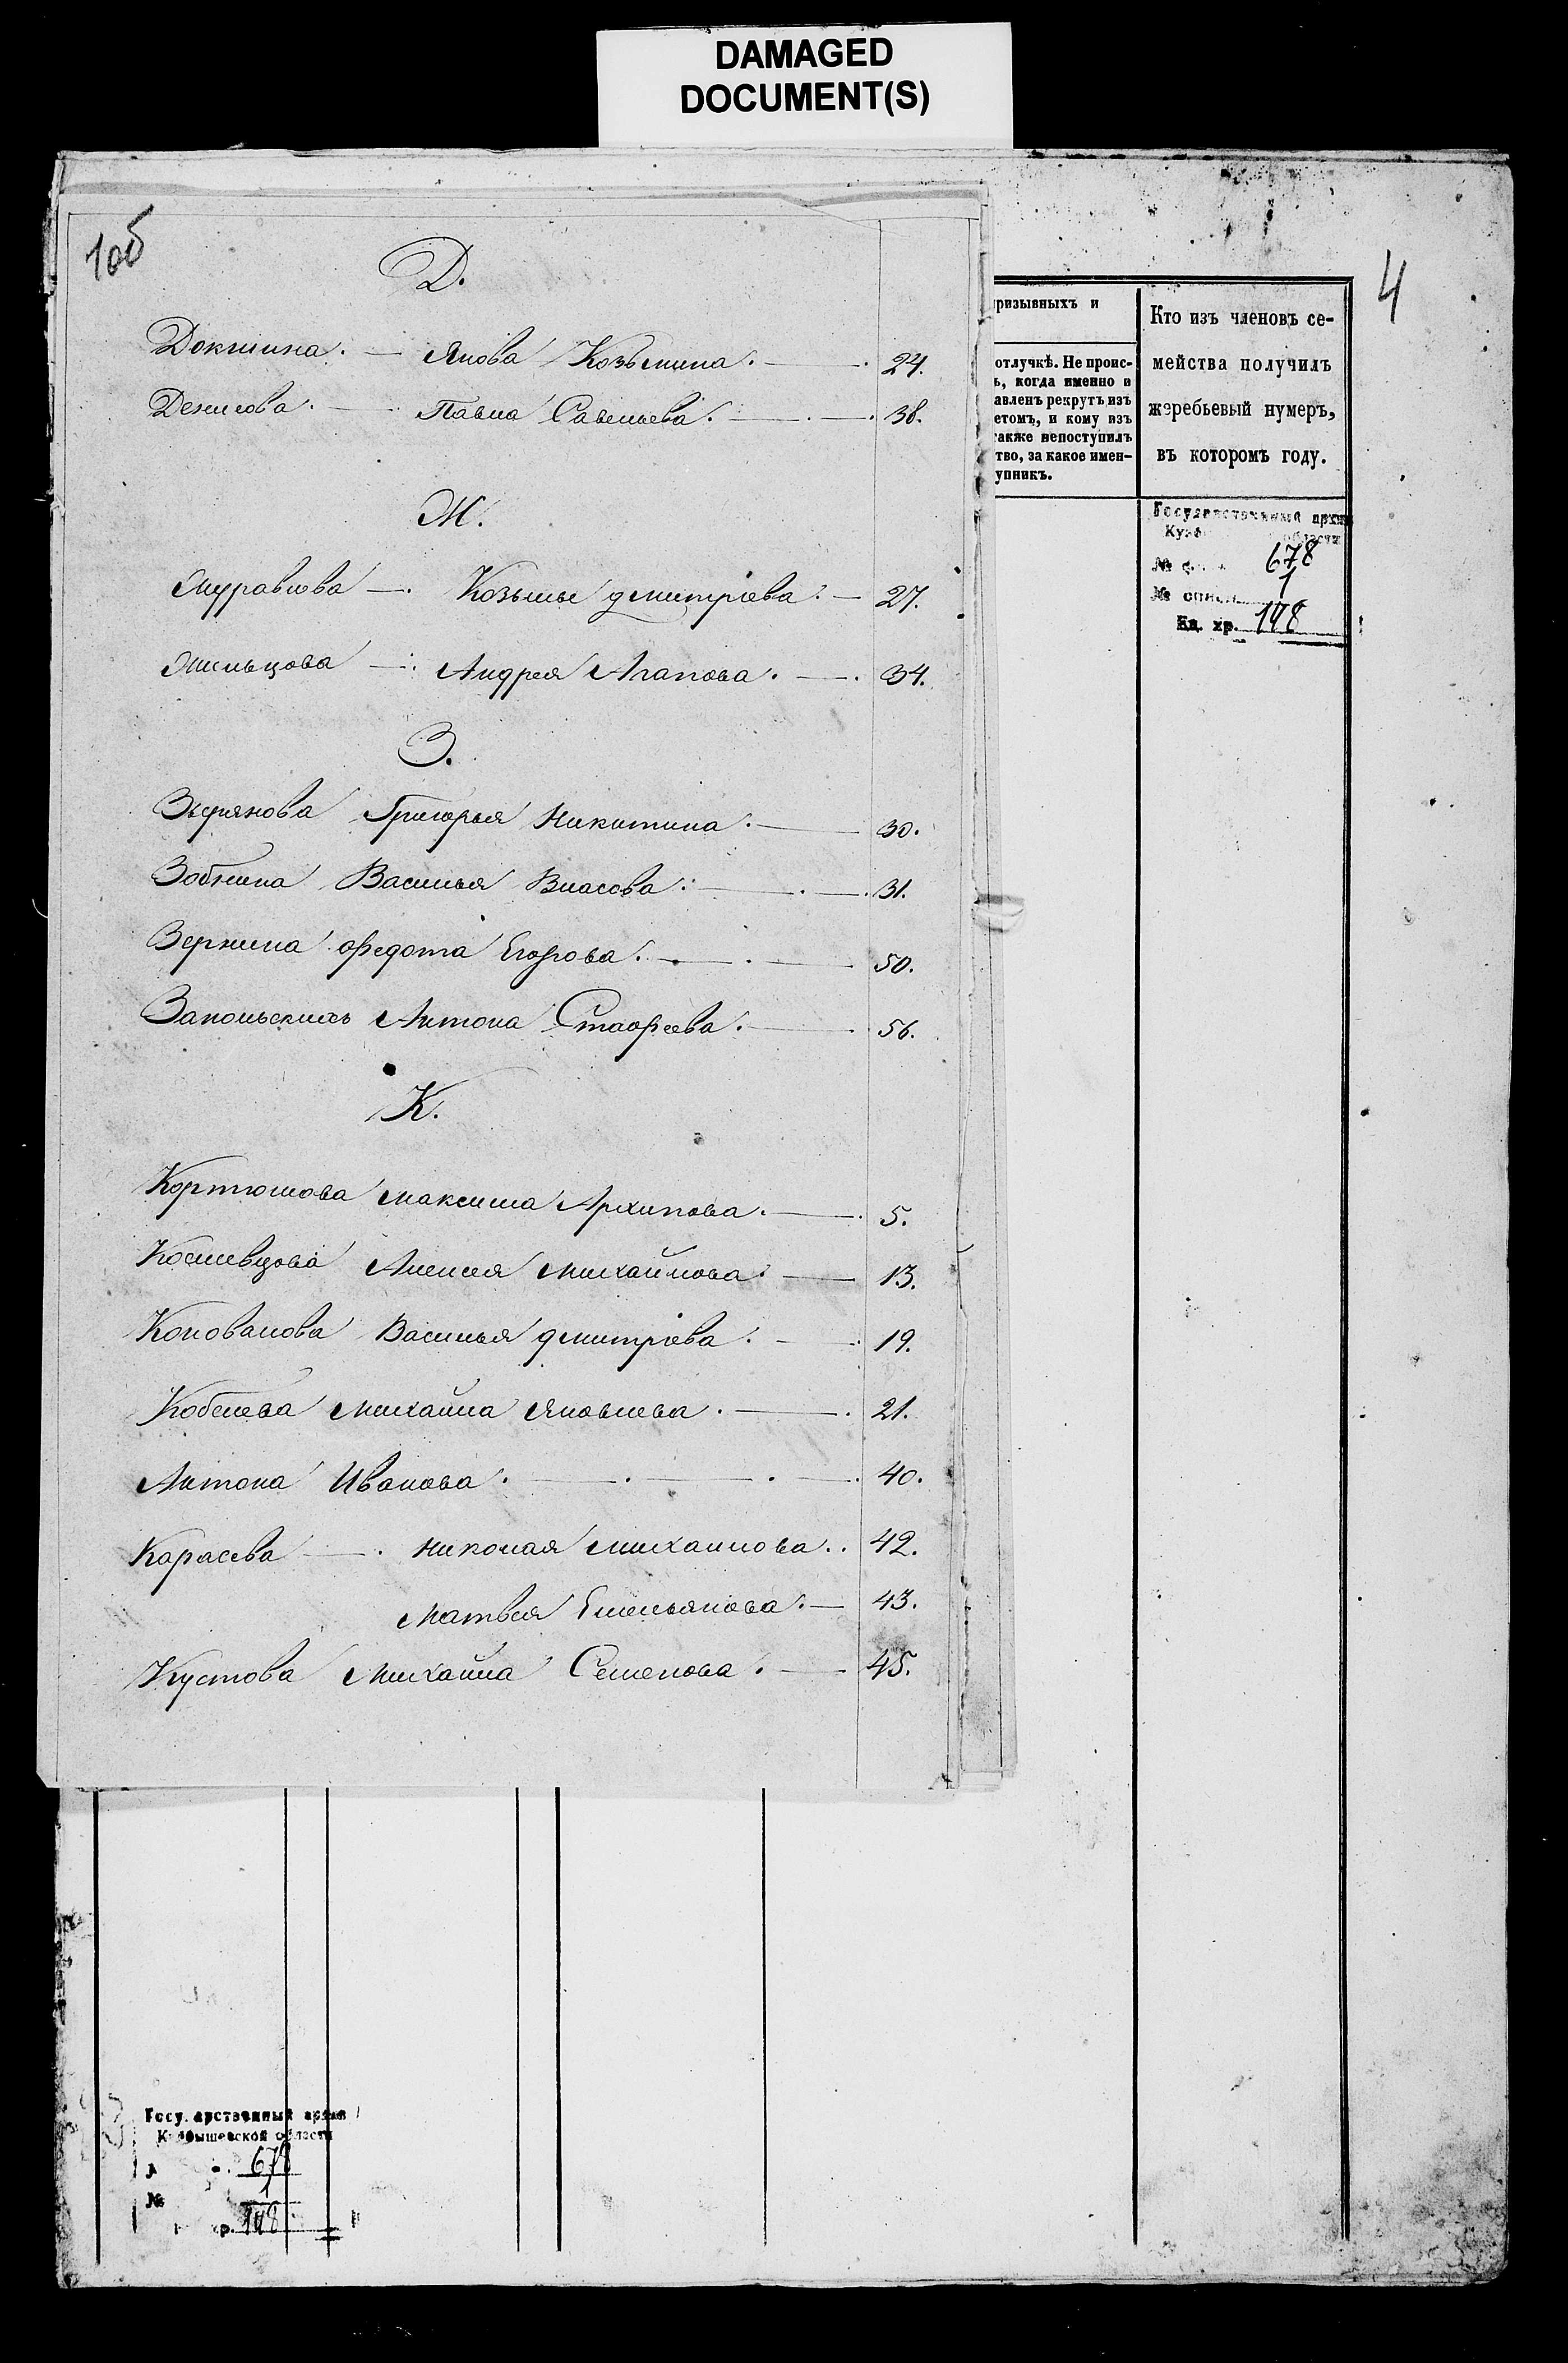 DAMAGED
DOCUMENT(S)
10б
Д.
Докшина. — Якова Козьмина. — 24.
Денисова. — Павла Савельева. — 38.
Ж.
Журавлова — Козьмы Дмитріева. — 27.
Жильцова — Андрея Агапова. — 34.
З.
Зырянова Григорья Никитина. — 30.
Зобнина Василья Власова. — 31.
Зернина Федота Егорова. — 50.
Запольскихъ Антона Стафеева. — 56.
К.
Кортюшова Максима Архипова. — 5.
Алексея Михайлова. — 13.
Коновалова Василья Дмитріева. — 19.
Кобелева Михайла Яковлева. — 21.
Антона Иванова. — 40.
Карасева — Николая Михайлова. 42.
Матвея Емельянова. — 43.
Кустова Михайла Семенова. — 45.
4
призывныхъ и
отлучкѣ. Не проис-
ь, когда именно и
авленъ рекрутъ изъ
етомъ, и кому изъ
также непоступилъ
тво, за какое имен-
упникъ.
Кто изъ членовъ се-
мейства получилъ
жеребьевый нумеръ,
въ которомъ году.
Государственный архив
области
№ 678
№ 1
Ед. хр. 148
Государственный архив
Куйбышевской области
678
№ 1
148